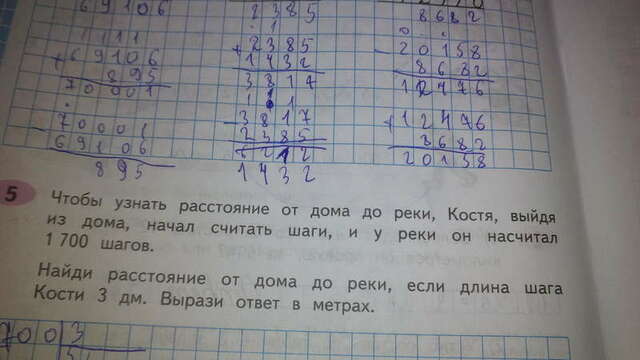 69106
2385
8682
1111
+69106
895
70001
70001
-69106
895
+2385
1432
3817
-3817
2385
1432
-20158
8682
12476
+12476
20158
5
Чтобы узнать расстояние от дома до реки, Костя, выйдя
из дома, начал считать шаги, и у реки он насчитал
1 700 шагов.
Найди расстояние от дома до реки, если длина шага
Кости 3 дм. Вырази ответ в метрах.
700 3